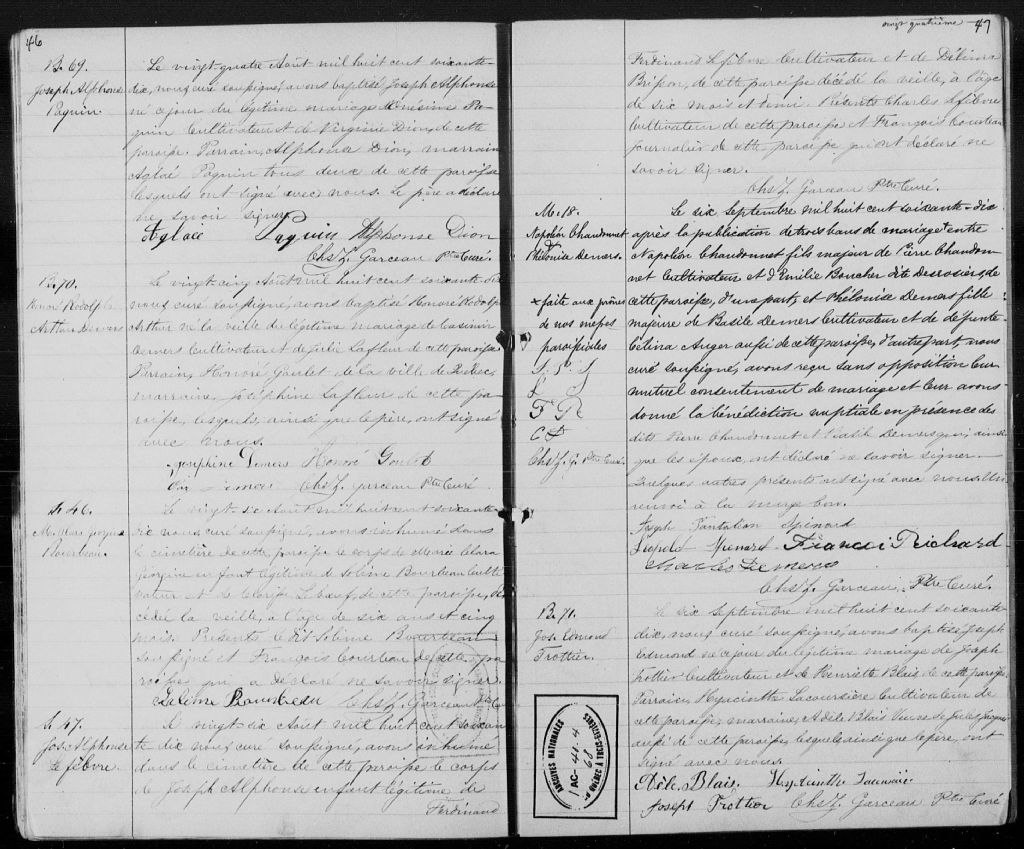 46
B. 69.
Joseph Alphonse
Paquin.
Le vingt-quatre Août mil huit cent soixante-
dix, nous curé soussigné, avons baptisé Joseph Alphonse
né ce jour du légitime mariage Onésime Pa-
quin Cultivateur et de Virginie Dion, de cette
paroisse. Parrain, Alphonse Dion, marraine
Aglaé Paquin tous deux de cette paroisse
lesquels ont signé avec nous. Le père a déclaré
ne savoir signer.
Aglaée Paquin Alphonse Dion
Chs Z. Garceau Ptre Curé.
B. 70.
Honoré Rodolf
Arthur Demers
Le vingt cinq Août mil huit cent soixante-dix
nous curé soussigné, avons baptisé Honoré Rodolf
Arthur né la veille du légitime mariage de Casimir
Demers Cultivateur et de Lafleur de cette paroisse
Parrain, Honoré Goulet, de la ville de Québec,
marraine, Joséphine Lafleur de cette pa-
roisse, lesquels, ainsi que le père, ont signé
avec nous.
Josephine Demers Honoré Goulet
Chs Z. Garceau Ptre Curé.
S. 46.
M. Clara Georgina
Bourbeau.
Le vingt-six Août mil huit cent soixante
dix nous curé soussigné, avons inhumé dans
le cimetière de cette paroisse le corps de Marie Clara
Géorgine enfant légitime de Solime Bourbeau Culti-
vateur et de Lebœuf, de cette paroisse, dé-
cédée la veille, à l'âge de six ans et cinq
mois. Présents le dit Solime Bourbeau
soussigné et François Courteau de cette pa-
roisse qui a déclaré ne savoir signer.
Solime Bourbeau Chs Z. Garceau Ptre Curé
S. 47.
Jos. Alphonse
Lefebvre.
Le vingt-six Août mil huit cent soixan-
te dix nous curé soussigné, avons inhumé
dans le cimetière de cette paroisse le corps
de Joseph Alphonse enfant légitime de
Ferdinand
vingt quatrième 47
Ferdinand Lefebvre Cultivateur et de Délima
Brisson, de cette paroisse décédé la veille, à l'âge
de six mois et demi. Présents Charles Lefebvre
Cultivateur de cette paroisse et François Courteau
journalier de cette paroisse qui ont déclaré ne
savoir signer.
Chs Z. Garceau Ptre Curé.
M. 18.
Napoléon Chandonnet
&
Philonia Demers.
x faite aux prônes
de nos messes
paroissiales
Chs Z. G. Ptre Curé.
Le six Septembre mil huit cent soixante-dix
après la publication de trois bans de mariage x entre
Napoléon Chandonnet fils majeur de Pierre Chandon-
net Cultivateur et d'Emilie Boucher dite Desrosiers, de
cette paroisse, d'une part, et Philonia Demers fille
majeure de Basile Demers Cultivateur et de défunte
Célina Auger aussi de cette paroisse, d'autre part, nous
curé soussigné, avons reçu sans opposition leur
mutuel consentement de mariage et leur avons
donné la bénédiction nuptiale en présence des
dits Pierre Chandonnet et Basile Demers qui, ainsi
que les époux, ont déclaré ne savoir signer.
Quelques autres présents ont signé avec nous. Un
renvoi à la marge bon.
Joseph Pantaléon Menard
Léopold Menard Francois Richard
Charles Demers
Chs Z. Garceau, Ptre Curé.
B. 71.
Jos. Edmond
Trottier.
Le six Septembre mil huit cent soixante
dix, nous curé soussigné, avons baptisé Joseph
Edmond né ce jour du légitime mariage de Joseph
Trottier Cultivateur et de Henriette Blais de cette paroisse
Parrain Hyacinthe Lacoursière Cultivateur de
cette paroisse, marraine, Adèle Blais Veuve de Jules
aussi de cette paroisse, lesquels ainsi que le père, ont
signé avec nous.
Dèle Blais
Joseph Trottier Chs Z. Garceau Ptre Curé
ARCHIVES NATIONALES
AC-41-4
60
DU QUÉBEC À TROIS-RIVIÈRES